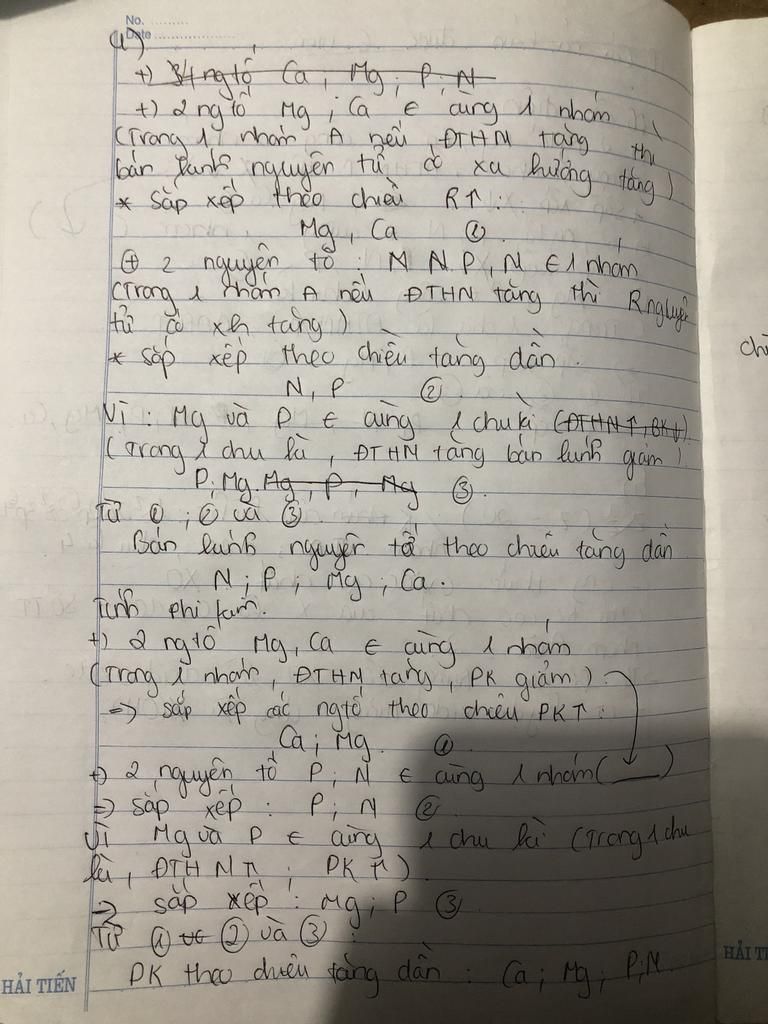 No. ............
Date ........................
a)
+) 3/4 ngtố Ca ; Mg ; P ; N
+) 2 ngtố Mg ; Ca ∈ cùng 1 nhóm
(Trong 1 nhóm A nếu ĐTHN tăng thì
bán kính nguyên tử có xu hướng tăng)
* Sắp xếp theo chiều R↑ :
Mg, Ca ①
⊕ 2 nguyên tố : N N P, N ∈ 1 nhóm
(Trong 1 nhóm A nếu ĐTHN tăng thì R nguyên
tử có xh tăng)
* sắp xếp theo chiều tăng dần.
N, P ②
Vì : Mg và P ∈ cùng 1 chu kì (ĐTHN↑, BK↓)
(Trong 1 chu kì, ĐTHN tăng bán kính giảm)
P; Mg Mg, P, Mg ③.
Từ ① ; ② và ③.
Bán kính nguyên tố theo chiều tăng dần
N ; P ; Mg ; Ca.
Tính phi kim.
+) 2 ngtố Mg, Ca ∈ cùng 1 nhóm
(Trong 1 nhóm, ĐTHN tăng, PK giảm)
=> sắp xếp các ngtố theo chiều PK↑ :
Ca ; Mg. ①
+) 2 nguyên tố P ; N ∈ cùng 1 nhóm (___)
=> sắp xếp : P ; N ②
Vì Mg và P ∈ cùng 1 chu kì (Trong 1 chu
kì, ĐTHN↑ ; PK↑)
=> sắp xếp : Mg ; P ③
Từ ① ② và ③ :
PK theo chiều tăng dần : Ca ; Mg ; P ; N.
HẢI TIẾN
HẢI TI